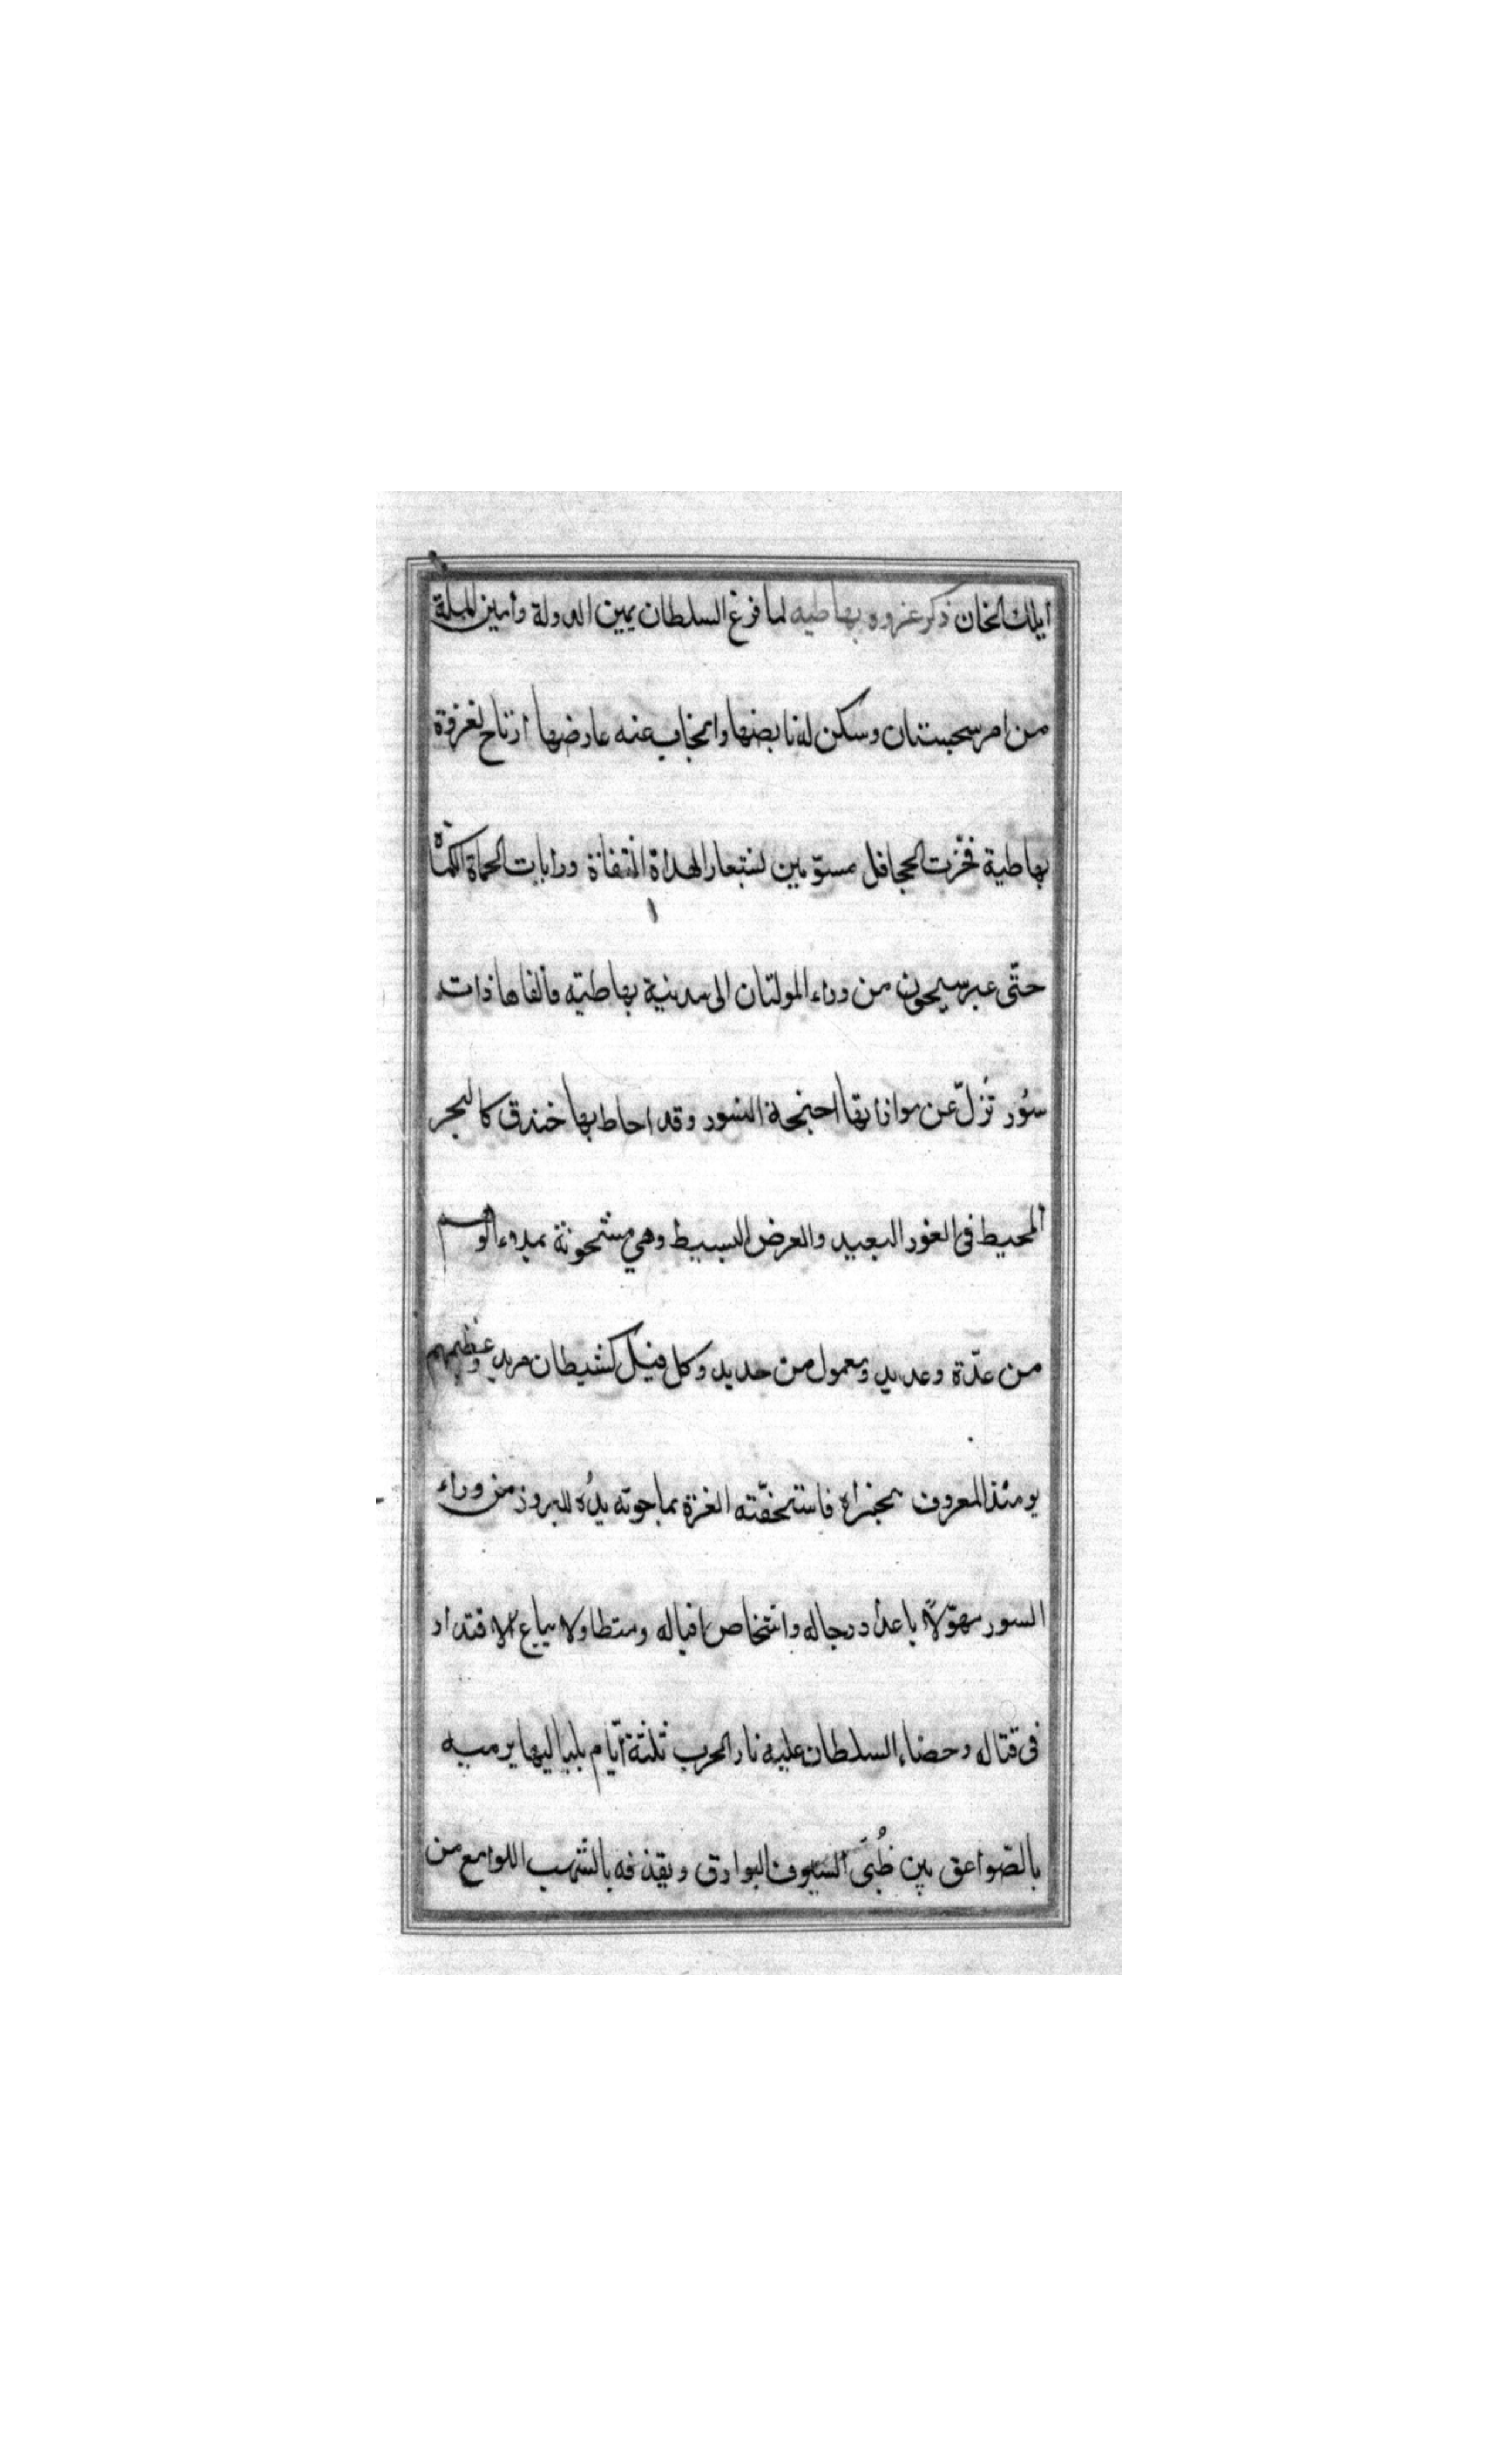 أيلك الخان ذكر غزوه بهاطيه لما فرغ السلطان يمين الدولة وأمين الملة
من امر سجستان وسكن له نابضها وانجاب عنه عارضها ارتاح لغزوة
بهاطية فجرّت الحجافل مسوّمين لشعار الهداة الثقاة ورايات الحماة الكماة
حتّى عبر سيحون من وراء المولتان الى مدينة بهاطيه فألفاها ذات
سُور تُزلّ عن موانا بقا اجنحة النسور وقد احاط بها خندق كالبحر
المحيط فى الغور البعيد والعرض البسيط وهي مشحونة بملاء الوسم
من عدّة وعديد ومعمول من حديد وكل فيل كشيطان مريد وعظيمهم
يومئذ المعروف بجزاه فاستخفّته الغرة بما حوته يدُه للبروز من وراء
السور مهوّلاً باعداد رجاله واشخاص افياله ومتطاولا بباع الاقتدار
فى قتاله وحضاء السلطان عليه نار الحرب ثلثة ايّام بلياليها يرميه
بالصّواعق بين ظُبَى السيوف البوارق ويقذفه بالشهب اللوامع من